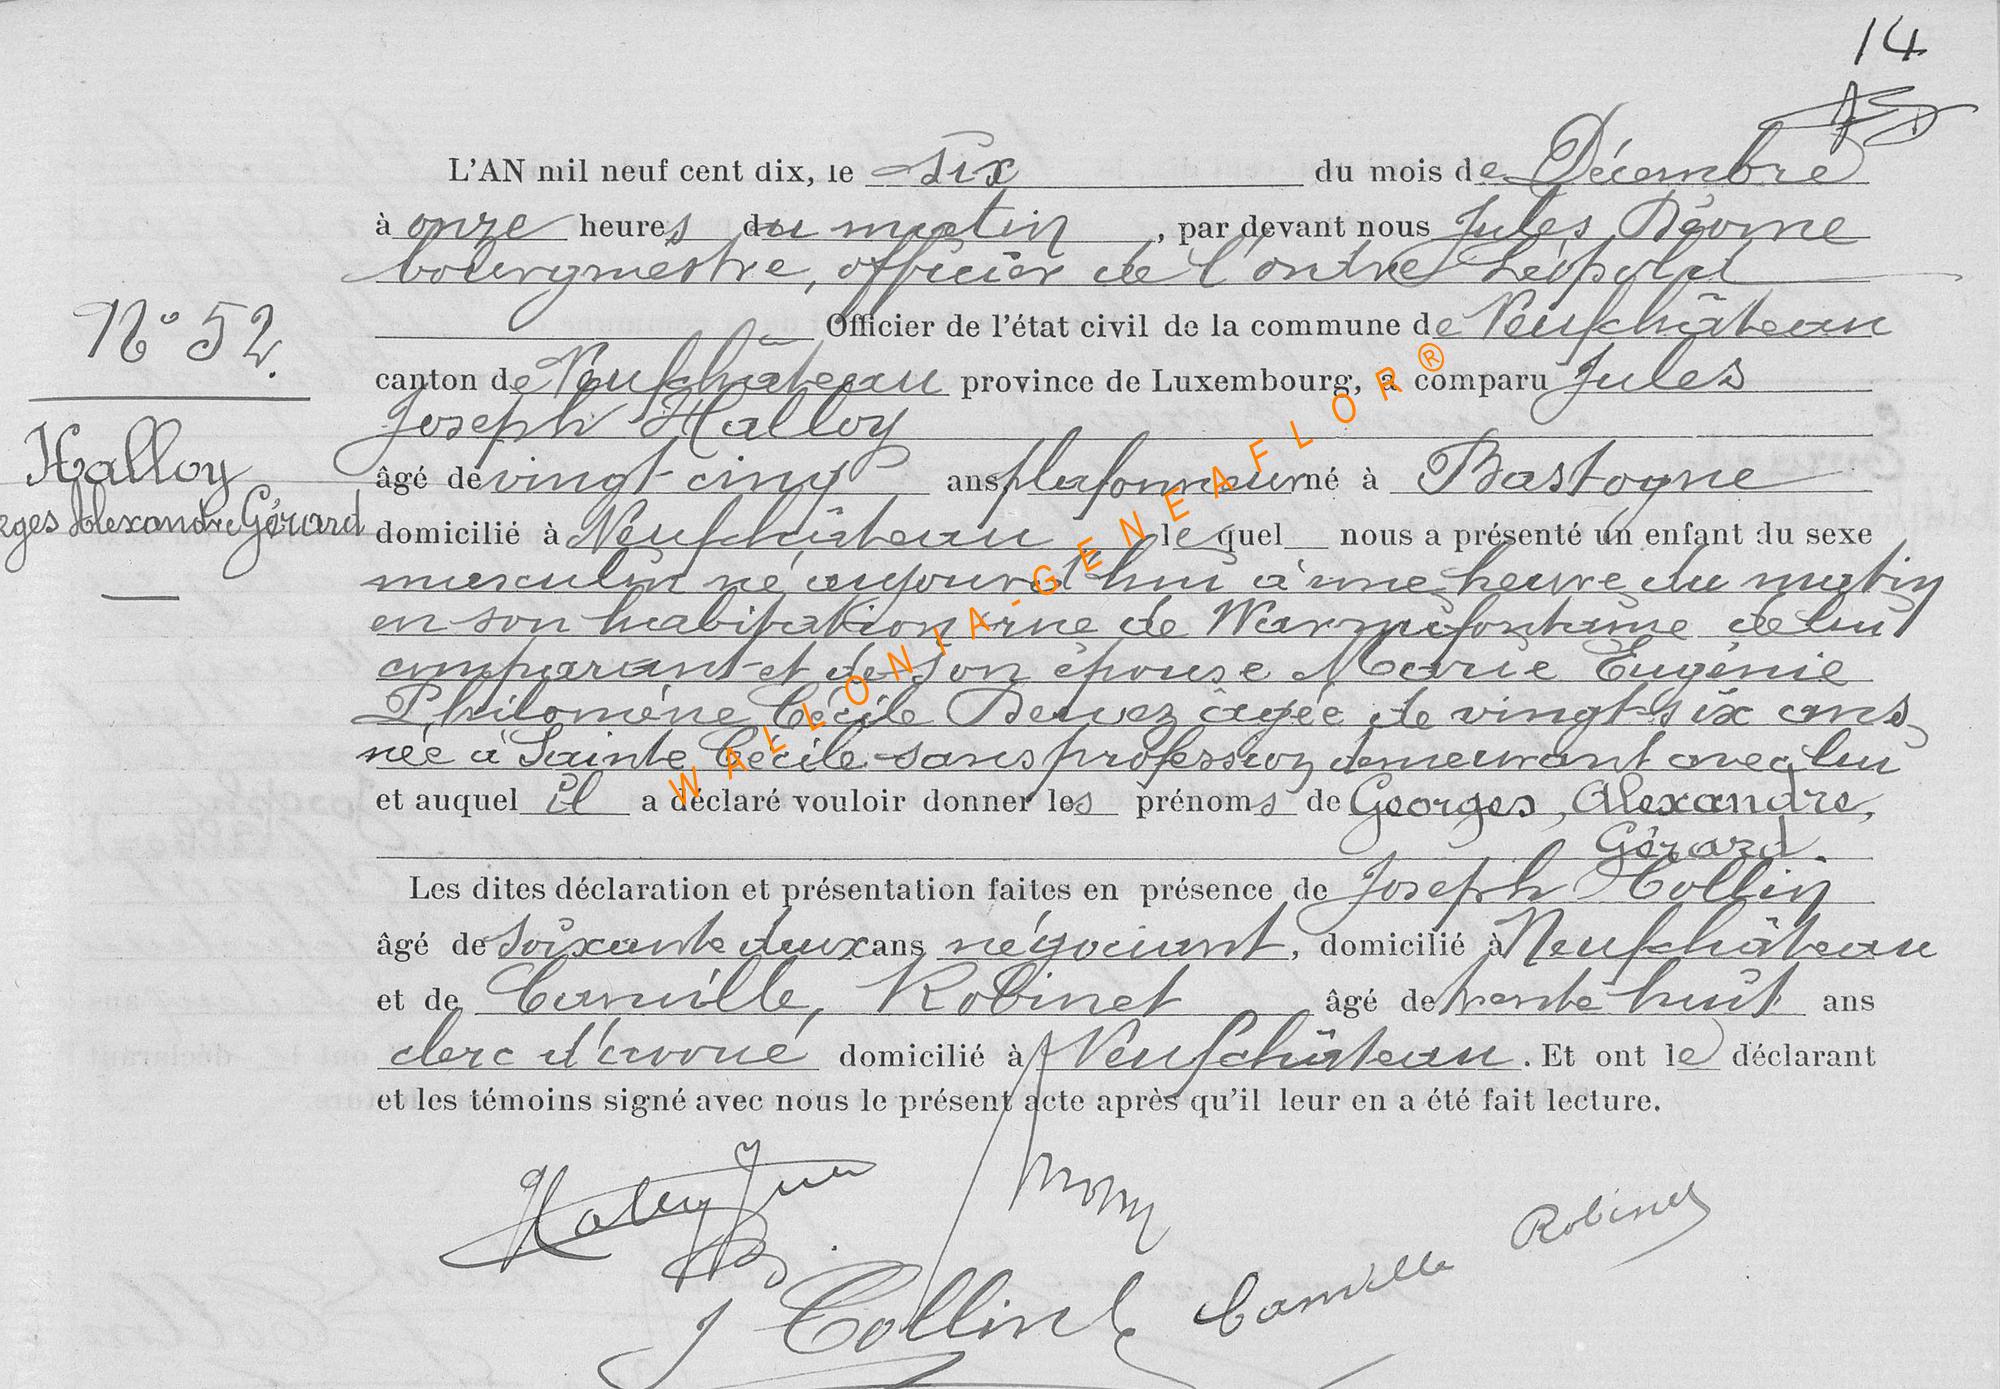 14
L'AN mil neuf cent dix, le six du mois de Décembre
à onze heures du matin, par devant nous Jules
bourgmestre, officier de l'ordre Léopold
N° 52.
Officier de l'état civil de la commune de Neufchâteau
canton de Neufchâteau province de Luxembourg, a comparu Jules
Joseph Halloy
Halloy
âgé de vingt cinq ans plafonneur né à Bastogne
rges Alexandre Gérard
domicilié à Neufchâteau lequel nous a présenté un enfant du sexe
masculin né aujourd'hui à une heure du matin
en son habitation rue de Warmifontaine de lui
comparant et de son épouse Marie Eugénie
Philomène Cécile âgée de vingt-six ans
née à Sainte Cécile sans profession demeurant avec lui
et auquel il a déclaré vouloir donner les prénoms de Georges, Alexandre,
Gérard.
Les dites déclaration et présentation faites en présence de Joseph Collin
âgé de soixante deux ans négociant, domicilié à Neufchâteau
et de Camille, Robinet âgé de trente huit ans
clerc d'avoué domicilié à Neufchâteau. Et ont le déclarant
et les témoins signé avec nous le présent acte après qu'il leur en a été fait lecture.
Halloy Jules
J Collin
Camille Robinet
WALLONIA-GENEAFLOR®